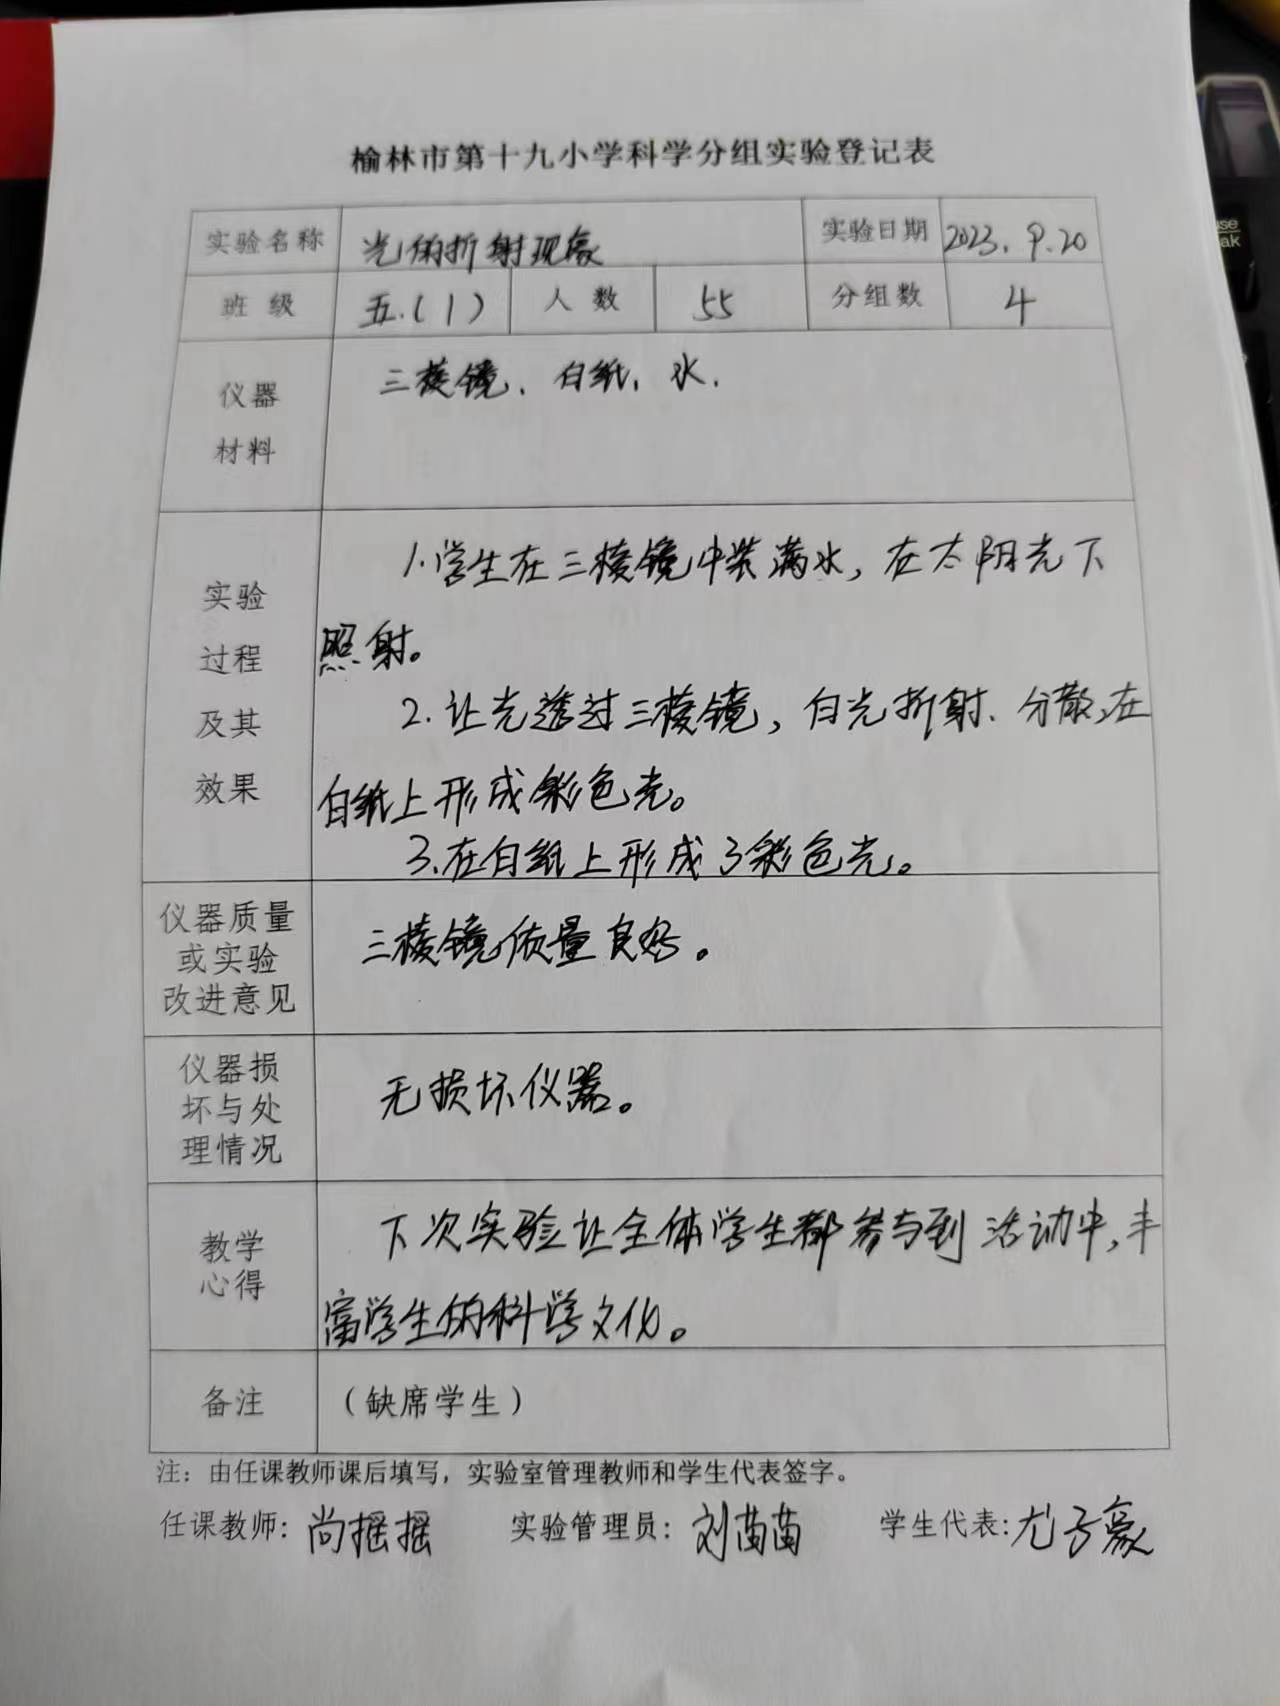 榆林市第十九小学科学分组实验登记表
实验名称 光的折射现象 实验日期 2023.9.20
班 级 五.(1) 人 数 55 分组数 4
仪器
材料
三棱镜、白纸、水.
实验
过程
及其
效果
1.学生在三棱镜中装满水，在太阳光下
照射。
2.让光透过三棱镜，白光折射、分散,在
白纸上形成彩色光。
3.在白纸上形成了彩色光。
仪器质量
或实验
改进意见
三棱镜质量良好。
仪器损
坏与处
理情况
无损坏仪器。
教学
心得
下次实验让全体学生都参与到活动中,丰
富学生的科学文化。
备注 （缺席学生）
注：由任课教师课后填写，实验室管理教师和学生代表签字。
任课教师: 尚摇摇 实验管理员: 刘苗苗 学生代表: 尤子豪
se
ak